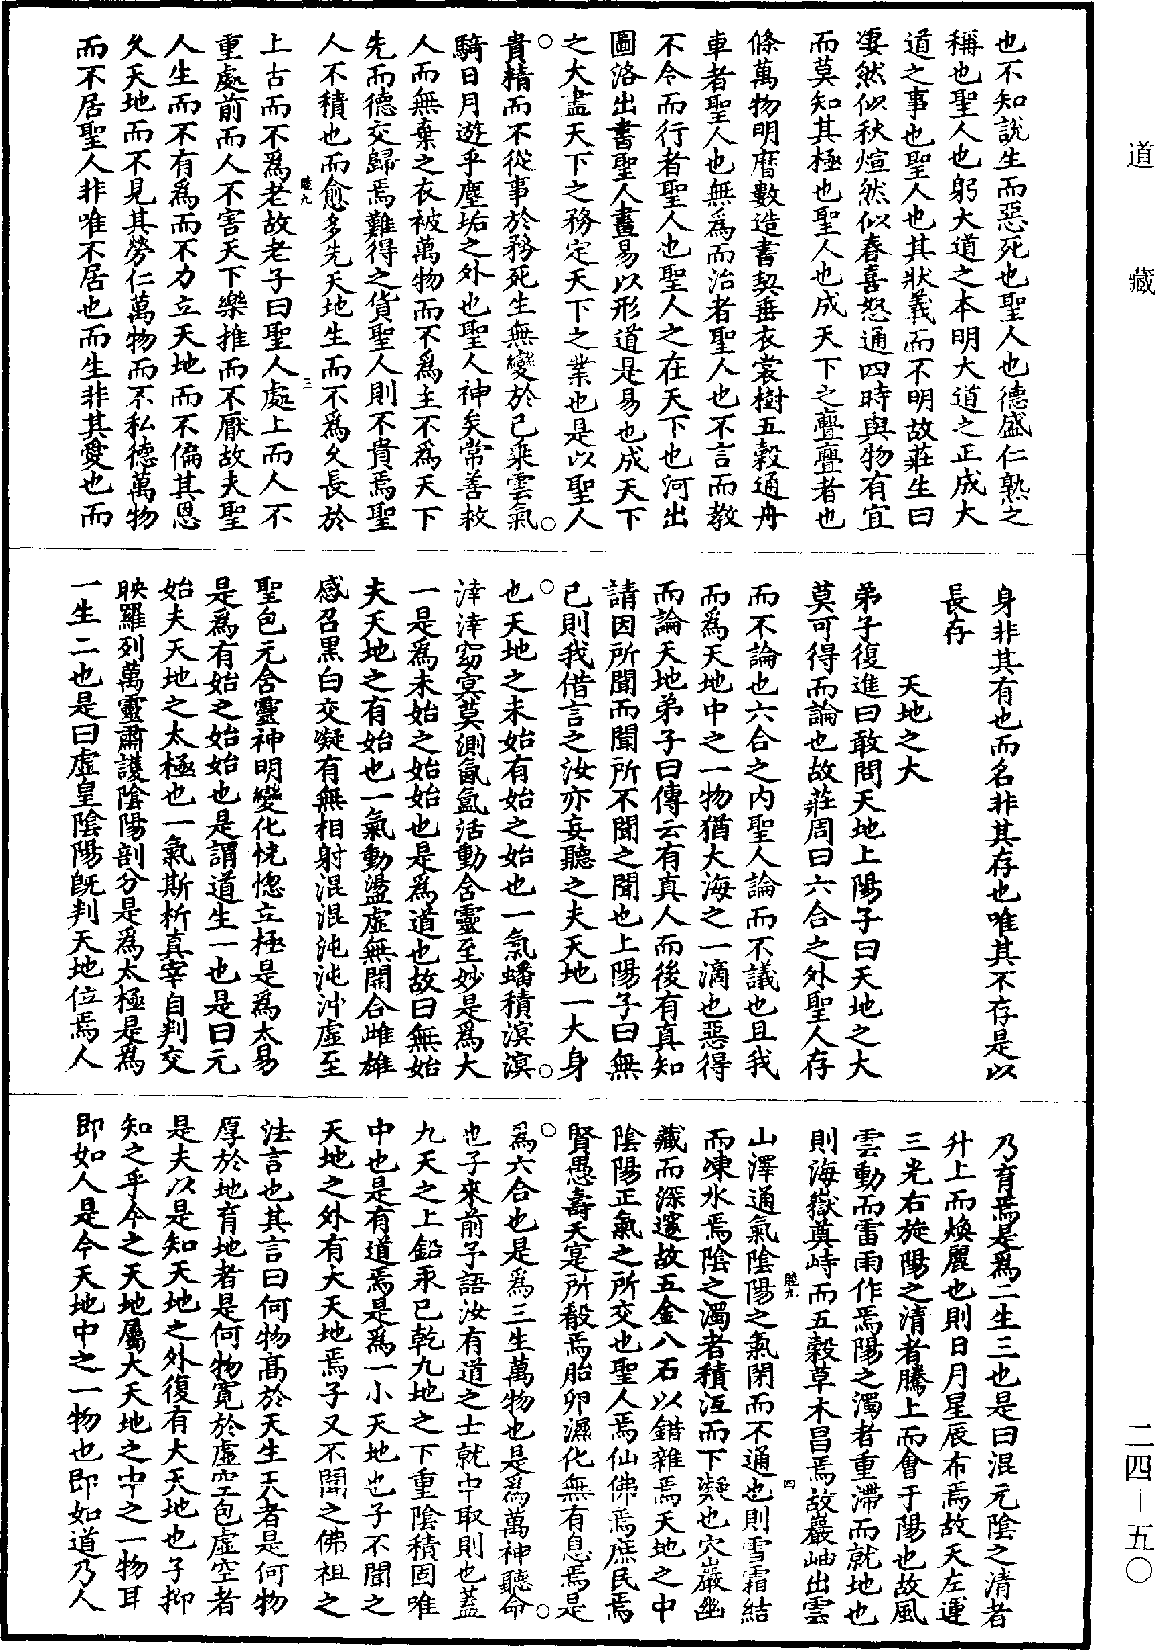 道藏
也不知說生而惡死也聖人也德盛仁熟之
稱也聖人也躬大道之本明大道之正成大
道之事也聖人也其狀義而不明故莊生曰
凄然似秋煊然似春喜怒通四時與物有宜
而莫知其極也聖人也成天下之亹亹者也
條萬物明曆數造書契垂衣裳樹五穀通舟
車者聖人也無為而治者聖人也不言而教
不令而行者聖人也聖人之在天下也河出
圖洛出書聖人畫易以形道是易也成天下
之大盡天下之務定天下之業也是以聖人
貴精而不從事於務死生無變於已乘雲氣
騎日月遊乎塵垢之外也聖人神矣常善救
人而無棄之衣被萬物而不為主不為天下
先而德交歸焉難得之貨聖人則不貴焉聖
人不積也而愈多先天地生而不為久長於
陸九 三
上古而不為老故老子曰聖人處上而人不
重處前而人不害天下樂推而不厭故夫聖
人生而不有為而不力立天地而不倫其恩
久天地而不見其勞仁萬物而不私德萬物
而不居聖人非唯不居也而生非其愛也而
身非其有也而名非其存也唯其不存是以
長存
天地之大
弟子復進曰敢問天地上陽子曰天地之大
莫可得而論也故莊周曰六合之外聖人存
而不論也六合之內聖人論而不議也且我
而為天地中之一物猶大海之一滴也惡得
而論天地弟子曰傳云有真人而後有真知
請因所聞而聞所不聞之聞也上陽子曰無
已則我借言之汝亦妄聽之夫天地一大身
也天地之未始有始之始也一氣蟠積溟溟
涬涬窈冥莫測氤氳活動含靈至妙是為大
一是為未始之始始也是為道也故曰無始
夫天地之有始也一氣動盪虛無開合雌雄
感召黑白交凝有無相射混混沌沌沖虛至
聖包元含靈神明變化恍惚立極是為太易
是為有始之始始也是謂道生一也是曰元
始夫天地之太極也一氣斯析真宰自判交
映羅列萬靈肅護陰陽剖分是為太極是為
一生二也是曰虛皇陰陽既判天地位焉人
乃育焉是為二生三也是曰混元陰之清者
升上而煥麗也則日月星辰布焉故天左運
三光右旋陽之清者騰上而會于陽也故風
雲動而雷雨作焉陽之濁者重滯而就地也
則海嶽奠峙而五穀草木昌焉故巖岫出雲
陸九 四
山澤通氣陰陽之氣閉而不通也則雪霜結
而凍氷焉陰之濁者積沍而下凝也穴巖幽
藏而深邃故五金八石以錯雜焉天地之中
陰陽正氣之所交也聖人焉仙佛焉庶民焉
賢愚壽夭寔所殽焉胎卵濕化無有息焉是
為六合也是為三生萬物也是為萬神聽命
也子來前予語汝有道之士就中取則也蓋
九天之上鉛汞已乾九地之下重陰積固唯
中也是有道焉是為一小天地也子不聞之
天地之外有大天地焉子又不聞之佛祖之
法言也其言曰何物高於天生天者是何物
厚於地育地者是何物寬於虛空包虛空者
是夫以是知天地之外復有大天地也子抑
知之乎今之天地屬大天地之中之一物耳
即如人是今天地中之一物也即如道乃人
二四－五〇